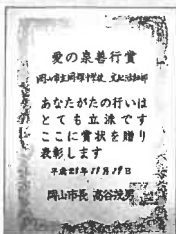 愛の泉善行賞
岡山市立岡輝中学校 文化活動部
あなたがたの行いは
とても立派です
ここに賞状を贈り
表彰します
平成21年11月19日
岡山市長 高谷茂男